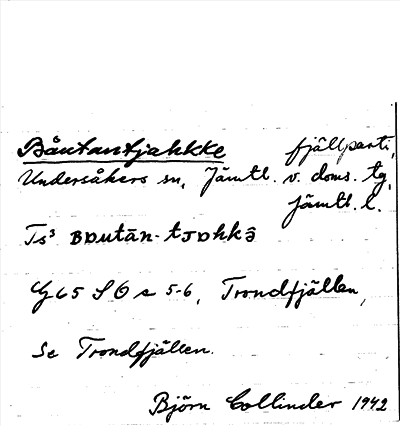 Båutantjahkke fjällparti,
Undersåkers sn, Jämtl. v. doms. tg,
Jämtl. l.
Ts³ BDutān-tJDhkə̂
G65 SO e 5-6, Trondfjällen,
Se Trondfjällen.
Björn Collinder 1942